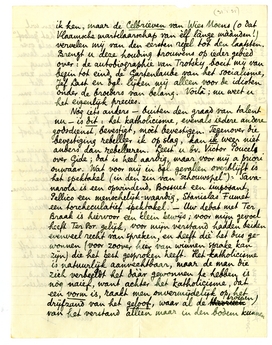 ik ken, maar de Celbrieven van Wies Moens (o dat
Vlaamsche martelaarschap van elf lange maanden!)
vervelen mij van den eersten regel tot den laatsten.
Brengt u deze houding trouwens op ieder gebied
over: de autobiographie van Trotsky boeit mij van
begin tot eind, de Gartenlaube van het socialisme,
Zij und Er bijv. lijken mij alleen voor de idioten
onder de broeders van belang. Voilà: nu weet u
het eigenlijk precies.
Nog iets anders — buiten den graad van talent
nu — is dit: het katholicisme, evenals iedere andere
godsdienst, bevestigt, moet bevestigen. Tegenover die
bevestiging rebelleer ik op slag, kan ik weer niet
anders dan rebelleeren. Leest u bv. Victor Poucel
over Gide; dat is heel aardig, maar voor mij a priori
onwaar. Wat voor mij in bv. gevallen overblijft is
het spektakel (in den zin van "schouwspel"): Sava-
narola is een opwindend, Bossuet een imposant,
Pellico een menschelijk-waardig, Stanislas Fumet
een toraculeuristisch spektakel. — Uw debat met Ter
Braak is hiervoor een klein bewijs; voor mijn gevoel
heeft Ter Br. gelijk, voor mijn verstand hadden beiden
evenveel recht van spreken, en heeft die het ge-
wonnen (voor zoover hier van winnen sprake kan
zijn) die het best gesproken heeft. Het katholicisme
is natuurlijk aanvechtbaar, maar de man die
zich verbeeldt het daar gewonnen te hebben is
nòg naief, want achter het katholicisme, dat
een vorm is, raakt men onvermijdelijk op het
drijfzand van het geloof, waar al de
van het verstand alleen maar in den bodem kunnen